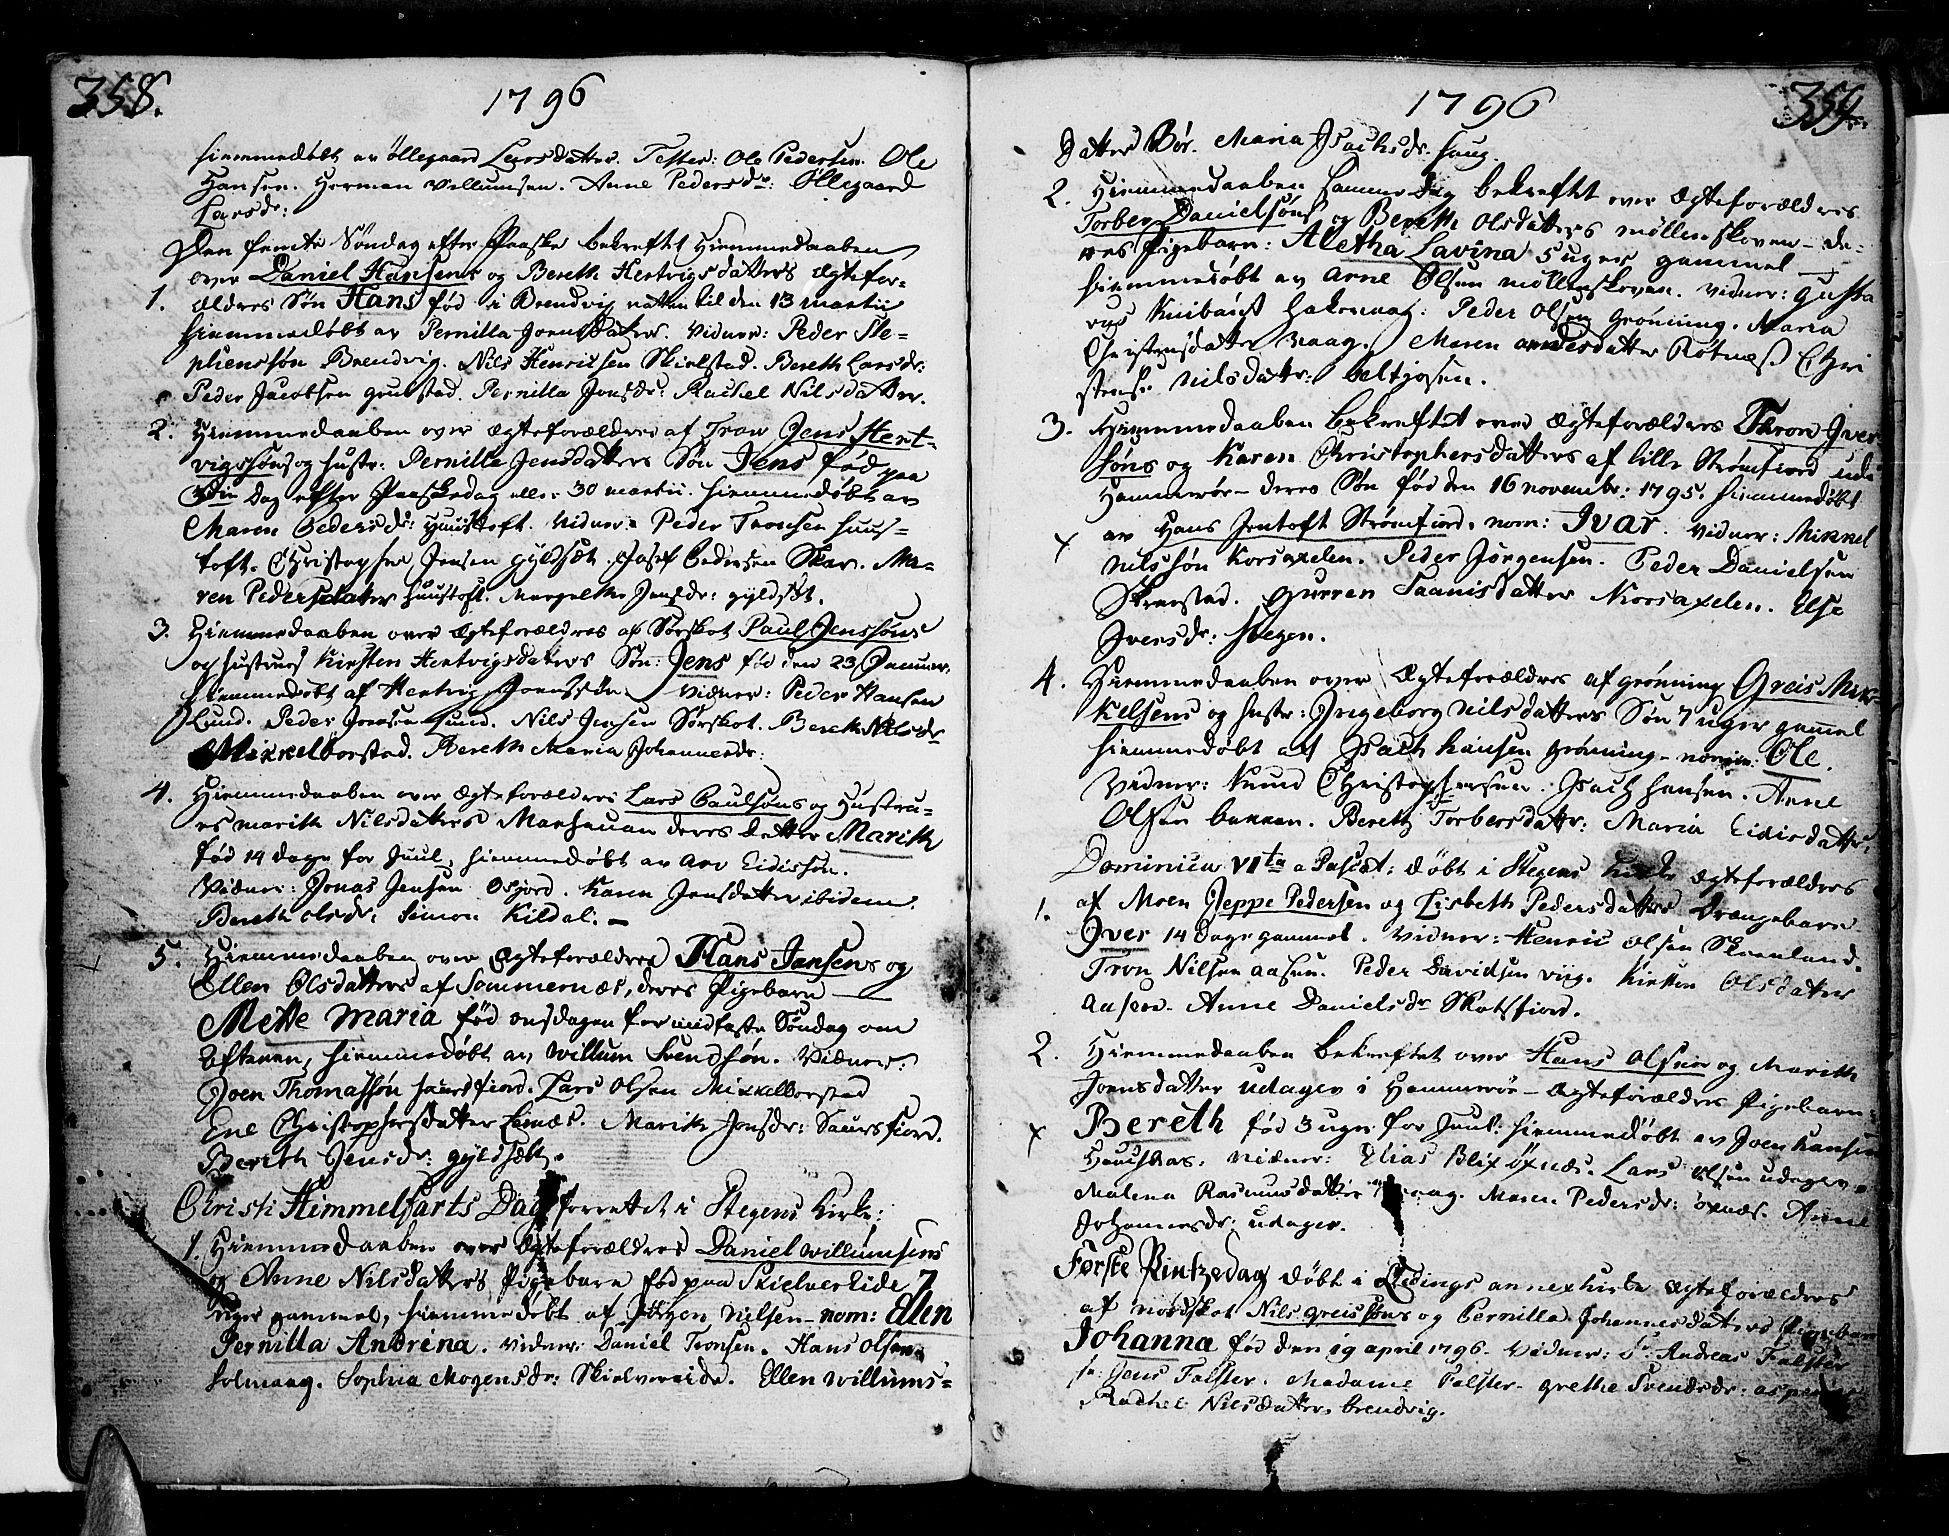 358.
1796
hiemmedøbt av Øllegaard Larsdatter. Tester: Ole Pedersen. Ole
Hansen. Herman Villumsen. Anne Pedersdr: Øllegaard
Larsdr:
Den femte Søndag efter Paaske bekreftet Hiemmedaaben
over Daniel Hansens og Bereth Hertvigsdatters Ægtefor-
1. ældres Søn Hans fød i Brendvig natten til den 13 martii
hiemmedøbt av Pernilla Joensdatter. Vidner: Peder Ste-
phensøn Brendvig. Nils Henrichsen Skielstad. Bereth Larsdr:
Peder Jacobsen Grunstad. Pernilla Jonsdr: Rachel Nilsdatter.
2. Hiemmedaaben over Ægteforældre af Trow Jens Hert-
vigssøns og hustr: Pernilla Jensdatters Søn Jens fød paa
Dag efter Paaskedag eller 30 martii. hiemmedøbt av
Maren Pedersdr: Huustoft. Vidner: Peder Tronsen Huus-
toft. Christopher Jensen Gyldsæt. Josef Pedersen Skar. Ma-
ren Pedersdatter Huustoft. Margrethe Jensdr: Gyldsæt.
3. Hiemmedaaben over Ægteforældres af Sørskot Paul Jenssøns
og hustrues Kirsten Hertvigsdatters Søn: Jens fød den 23 Januar.
hiemmedøbt af Hertvig Joenssøn. Vidner: Peder Hansen
Lund. Peder Joensen Lund. Nils Jensen Sørskot. Bereth Nilsdr
Mikkelborstad. Bereth Maria Johannesdr:
4. Hiemmedaaben over Ægteforældres Lars Paulsøns og Hustru-
es Marith Nilsdatters Marhauan deres datter Marith
fød 14 dage for Juul, hiemmedøbt av Arv Eidissøn.
Vidner: Jonas Jensen Osjord. Karen Jensdatter ibidem.
Bereth Olsdr: Simon Kildal. –
5. Hiemmedaaben over Ægteforældres Hans Jansens og
Ellen Olsdatters af Sommernæs, deres Pigebarn
Mette Maria fød onsdagen for midfaste Søndag om
Aftenen, hiemmedøbt av Willum Svendsøn. Vidner:
Joen Thomassøn Saursfiord. Lars Olsen Mikkelborstad
Ene Christophersdatter Lemæs. Marith Jonsdr: Saursfiord.
Bereth Jensdr: Gyldsæt.
Christi Himmelfarts Dag forrettet i Stegens Kirke:
1. Hiemmedaaben over Ægteforældres Daniel Willumsens
og Anne Nilsdatters Pigebarn fød paa Skielvereide 7
uger gammel, hiemmedøbt af Jørgen Nilsen – nom: Elen
Pernilla Andrina. Vidner: Daniel Tronsen. Hans Olsen
Holmaag. Sophia Mogensdr: Skielvereide. Ellen Willums-
1796
359.
Datter Bør. Maria Isachsdr. Haug.
2. Hiemmedaaben samme Dag bekreftet over Ægteforældres
Torber Danielsøns og Bereth Olsdatters Møllenskoven – de-
res Pigebarn: Aletha Lavina 5 uger gammel –
hiemmedøbt av Arne Olsen Møllenskoven. Vidner: Gusta
vus Peder Olsen Grønning. Maria
Christensdatter Maren Andesdatter Røtnæss Chri
stense Nilsdattr:
3. Hiemmedaaben bekreftet over Ægteforældres Thron Iver
søns og Karen Christophersdatters af lille Strømfiord udi
Hammerøe – deres Søn fød den 16 novembr: 1795. hiemmedøbt
av Hans Jentoft Strømfiord. nom: Ivar. Vidner: Mikkel
x Nilssøn Korsaxelen. Peder Jørgensen. Peder Danielsen
Skeerstad. Gurren Taanisdatter Korsaxelen. Else
Iversdr: Stegen.
4. Hiemmedaaben over Ægteforældres af Grønning Greis Mik-
kelsens og hustr: Ingeborg Nilsdatters Søn 7 uger gammel
hiemmedøbt af Isach Hansen Grønning – nomin: Ole.
Vidner: Knud Christophersen. Isach Hansen. Anne
Olsen Bakken. Bereth Torbersdattr: Maria Eidisdatter.
Dominica VIta a Pascat: døbt i Stegens Kirke Ægteforældres
1. af Moen Jeppe Pedersen og Lisbeth Pedersdatters Drængebarn
Iver 14 dage gammel. Vidner: Henric Olsen Skeenland.
Tron Nilsen Aasen. Peder Davidsen Viig. Kirsten Olsdatter
Aasen. Anne Danielsdr Skotsfiord.
2. Hiemmedaaben bekreftet over Hans Olsen og Marith
Joensdatter Udager i Hammerøe – Ægteforældres Pigebarn:
x Bereth fød 3 uger for Juul. hiemmedøbt av Joen Hansen
Vidner: Elias Blix Øxnæs. Lars Olsen Udager.
Malena Rasmusdatter Maren Pedersdr: Øxnæs. Anne
Johannesdr: Udager.
Første Pintzedag døbt i Ledings annexkirke Ægteforældres
af Nordskot Nils Greissøns og Pernilla Johannesdatters Pigebarn
Johanna fød den 19 april 1796. Vidner: Sr: Andreas Falster
Sr: Jens Falster. Madame Falster. Grethe Svendsdr:
Rachel Nilsdatter Brendvig.